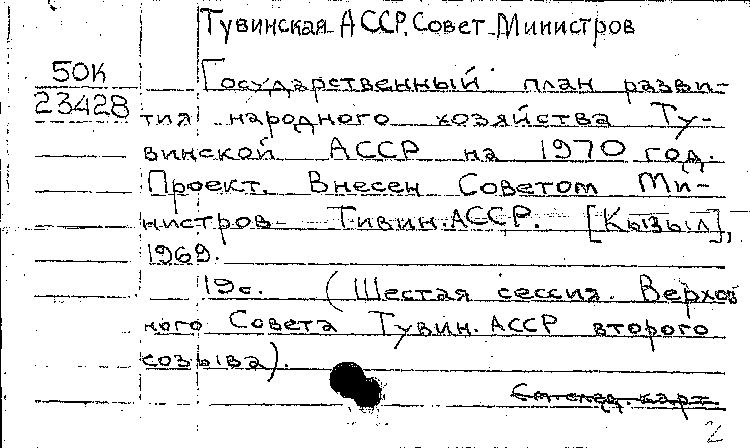 Тувинская АССР. Совет Министров
50К
23428
Государственный план разви-
тия народного хозяйства Ту-
винской АССР на 1970 год.
Проект. Внесен Советом Ми-
нистров Тивин. АССР. [Кызыл],
1969.
19с. (Шестая сессия. Верхов
ного Совета Тувин. АССР второго
созыва).
См. след. карт.
2